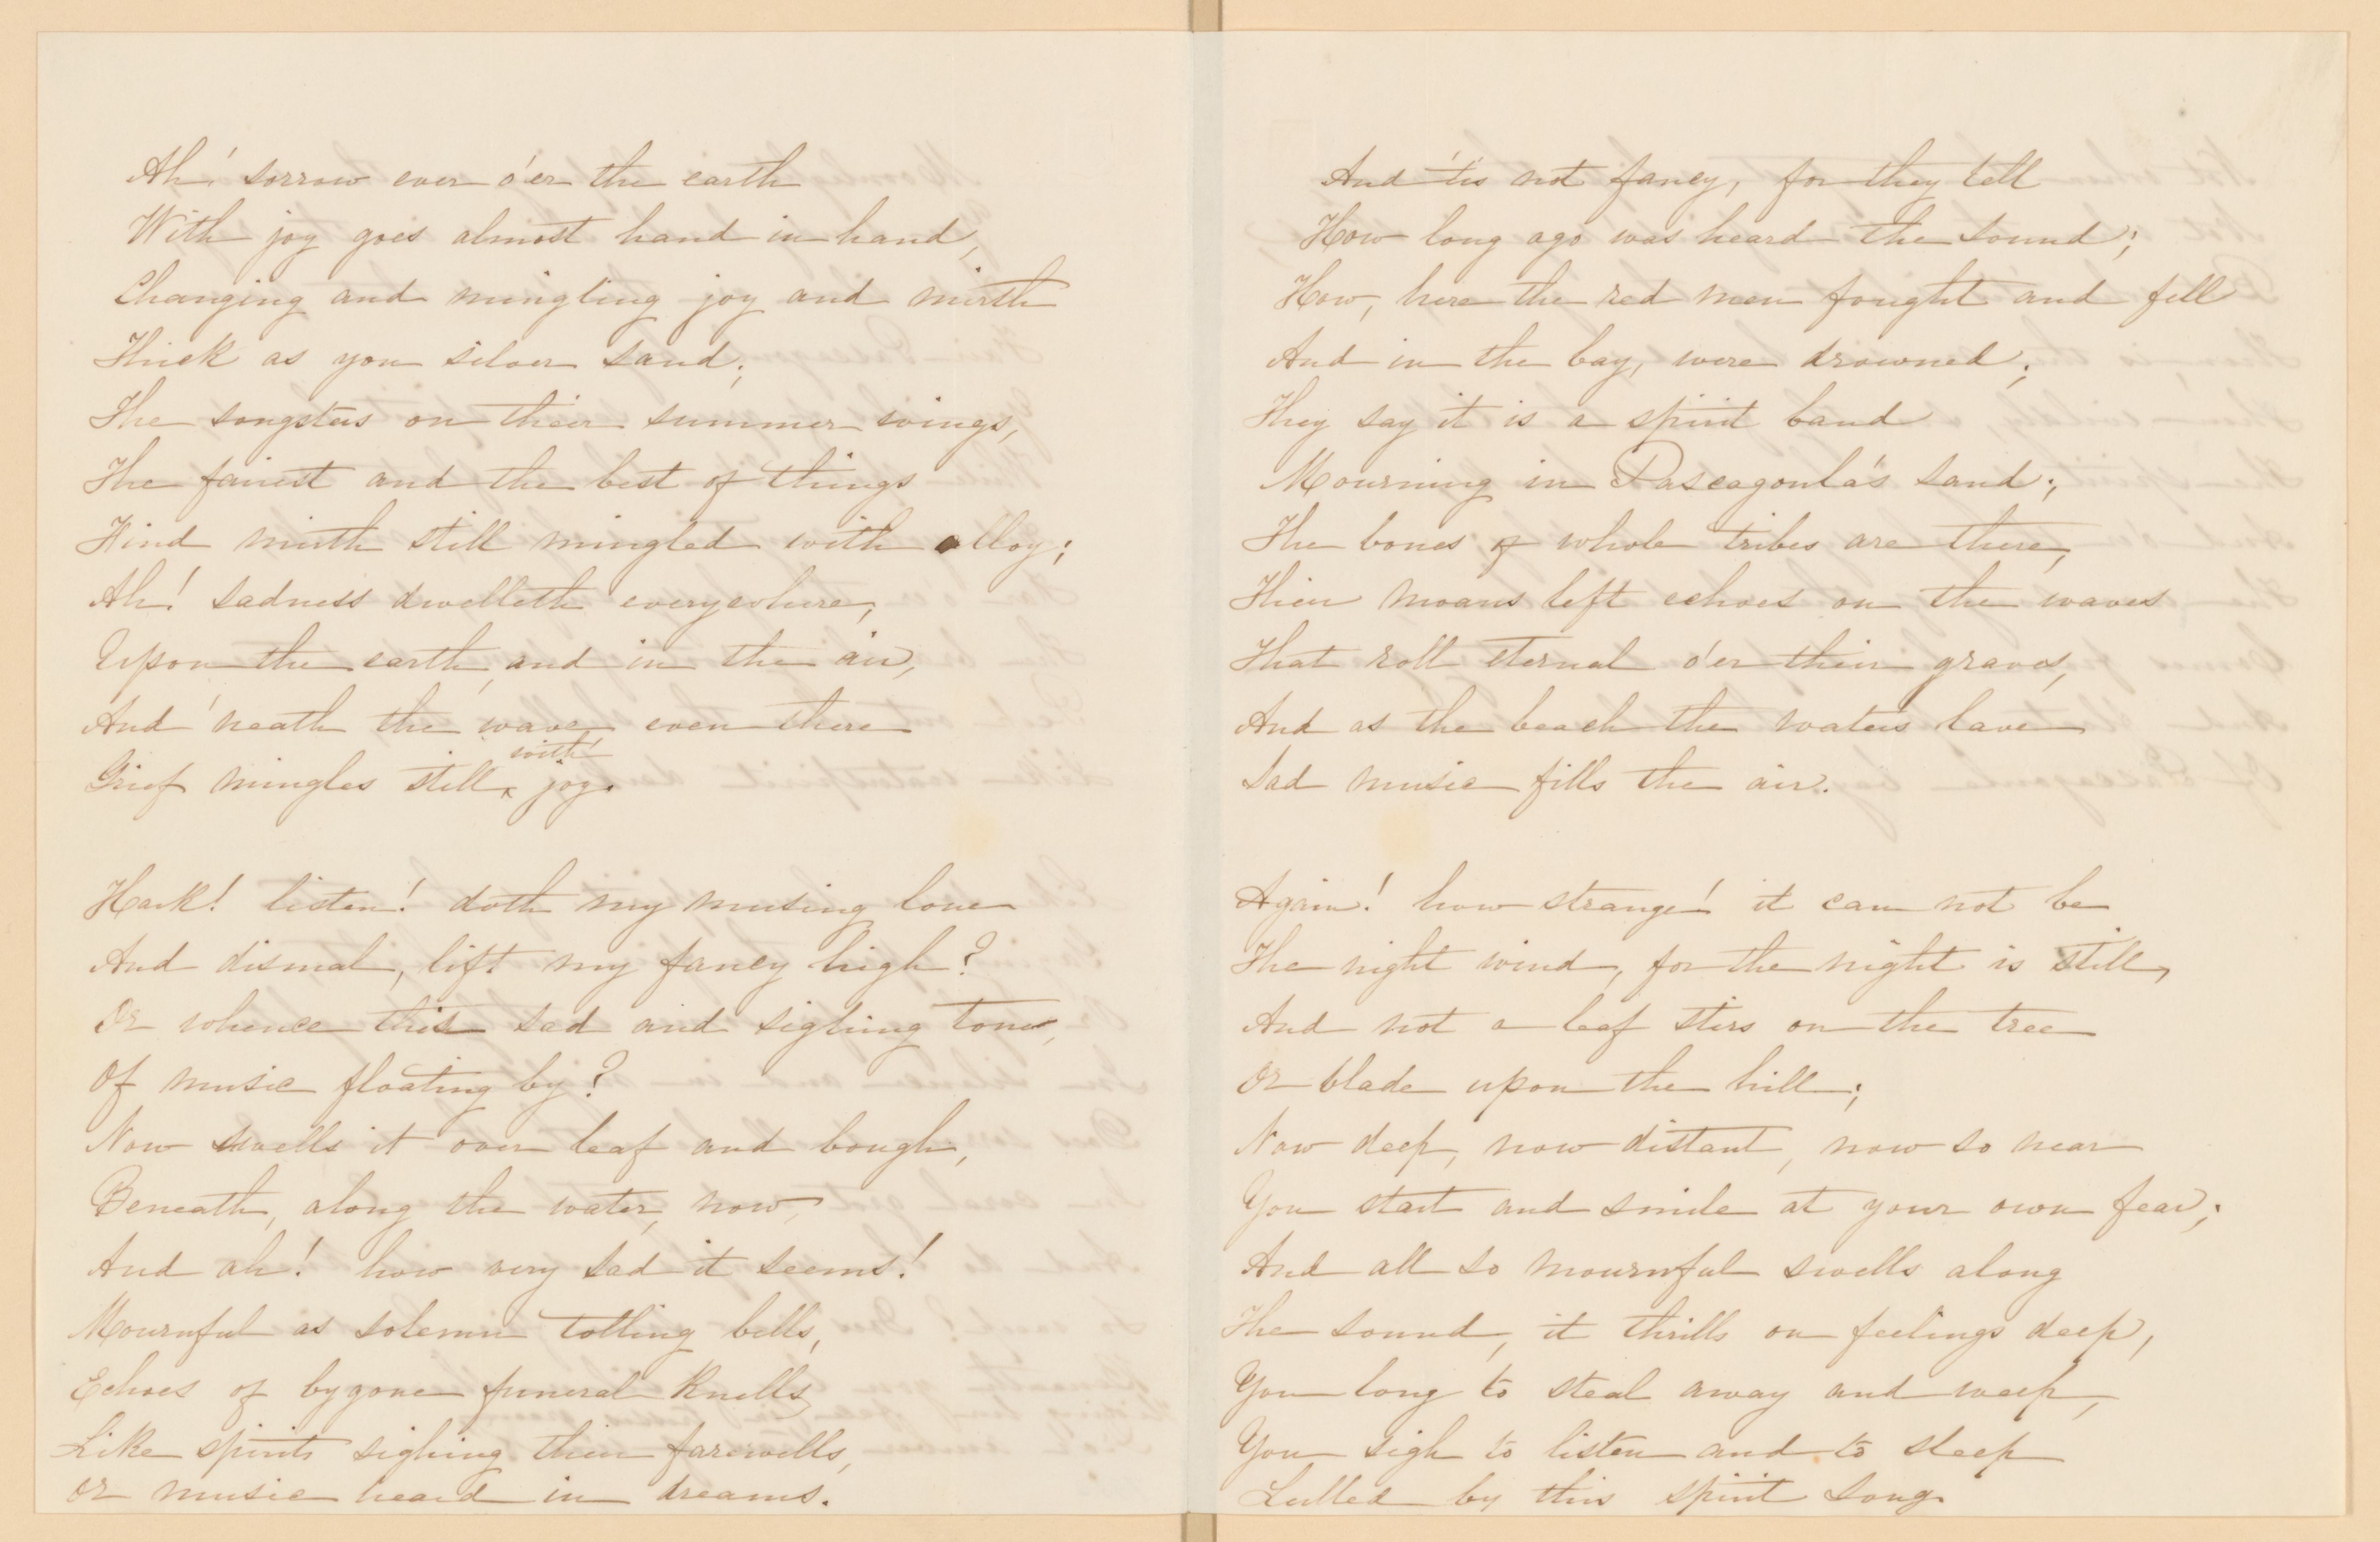 Ah! sorrow ever o'er the earth
With joy goes almost hand in hand,
Changing and mingling joy and mirth
Thick as yon silver sand;
The songsters on their summer wings,
The fairest and the best of things
Find mirth still mingled with alloy;
Ah! sadness dwelleth everywhere,
Upon the earth, and in the air,
And 'neath the wave even there
Grief mingles still with joy.
Hark! listen! doth my musing lone
And dismal, lift my fancy high?
Or whence this sad and sighing tone,
Of music floating by?
Now swells it over leaf and bough,
Beneath, along the water, now,
And ah! how very sad it seems!
Mournful as solemn tolling bells,
Echoes of bygone funeral knells,
Like spirits sighing their farewells,
Or music heard in dreams.
And 'tis not fancy, for they tell
How long ago was heard the sound;
How, here the red men fought and fell
And in the bay, were drowned;
They say it is a spirit band
Mourning in Pascagoula's sand;
The bones of whole tribes are there,
Their moans left echoes on the waves
That roll eternal o'er their graves,
And as the beach the waters lave
Sad music fills the air.
Again! how strange! it can not be
The night wind, for the night is still,
And not a leaf stirs on the tree
Or blade upon the hill;
Now deep, now distant, now so near
You start and smile at your own fear;
And all so mournful swells along
The sound, it thrills on feelings deep,
You long to steal away and weep,
You sigh to listen and to sleep
Lulled by this spirit song